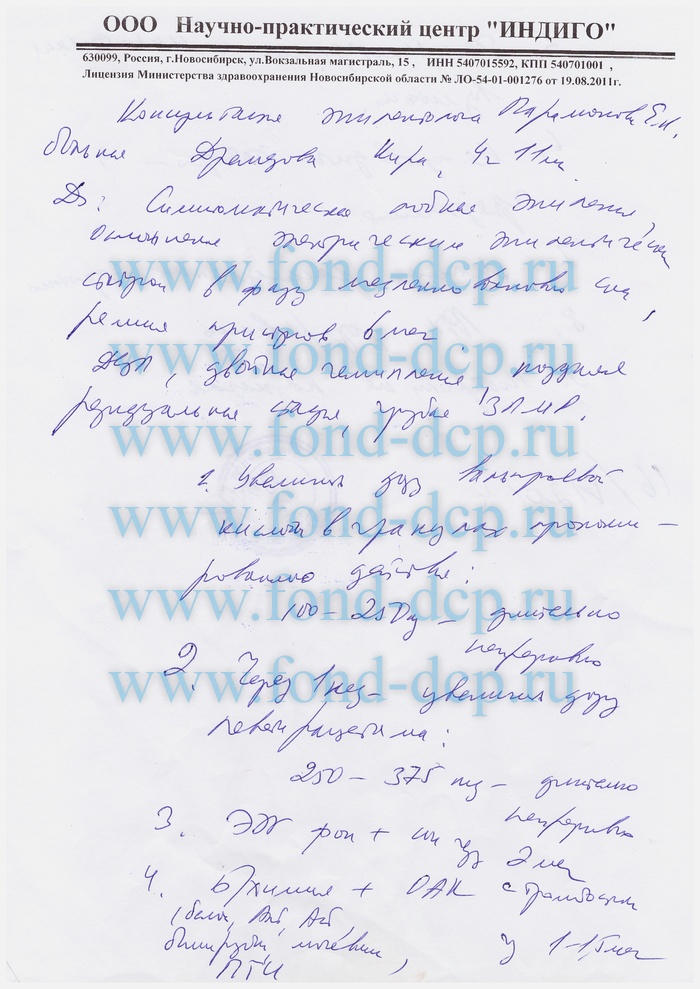 ООО Научно-практический центр "ИНДИГО"
630099, Россия, г.Новосибирск, ул.Вокзальная магистраль, 15 , ИНН 5407015592, КПП 540701001 ,
Лицензия Министерства здравоохранения Новосибирской области № ЛО-54-01-001276 от 19.08.2011г.
Консультация эпилептолога Парамонова Е.Н.
больная Кира, 4г 11м
Ds: Симптоматическая лобная эпилепсия,
электрическим эпилептическим
www.fond-dcp.ru
статусом в фазу медленно-волнового сна,
ремиссия приступов 6 мес
www.fond-dcp.ru
ДЦП, двойная гемиплегия, поздняя
резидуальная стадия, грубая ЗПМР.
www.fond-dcp.ru
1. Увеличить дозу вальпроевой
www.fond-dcp.ru
кислоты в гранулах пролонги-
рованного действия:
www.fond-dcp.ru
100-250 мг - длительно
непрерывно
www.fond-dcp.ru
2. Через 1 нед - увеличить дозу
леветирацетама:
250 - 375 мг - длительно
непрерывно
3. ЭЭГ фон + сон чз 2 мес
4. Б/химия + ОАК с тромбоцитами
(белок, АлТ, АсТ,
билирубин, мочевина,
ПТИ чз 1-1,5 мес